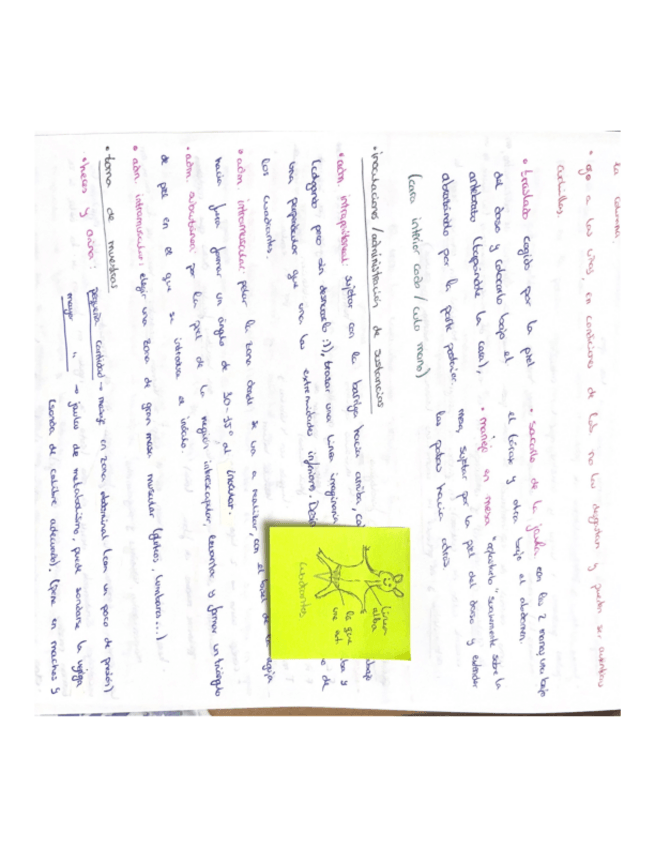 la camina.
• ojo a las uñas, en condiciones de lab. no las desgastan y pueden ser auténticas
cuchillas.
• traslado cogido por la piel
del dorso y colocarlo bajo el
antebrazo (tapándole la cara),
abrazando por la parte posterior.
(cara interior codo / culo mano)
• sacarlo de la jaula con las 2 manos una bajo
el tórax y otra bajo el abdomen.
• manejo en mesa "aplastarlo" suavemente sobre la
mesa, sujetar por la piel del dorso y extender
las patas hacia atrás
• inoculaciones / administración de sustancias
• adm. intraperitoneal: sujetar con la barriga hacia arriba,
(colgando pero sin desnucarlo :)), trazar una línea imaginaria
una perpendicular que una las extremidades inferiores.
los cuadrantes.
• adm. intramuscular: pelar la zona donde se va a realizar, con el bisel de la aguja
hacia fuera formar un ángulo de 30-45° al inocular.
• adm. subcutánea: por la piel de la región interescapular, levantar y formar un triángulo
de piel en el que se introduce el inóculo.
• adm. intramuscular: elegir una zona de gran masa muscular (glúteos, lumbares...)
• toma de muestras
• heces y orina: pequeña cantidad → masaje en zona abdominal (con un poco de presión)
mayor " → jaulas de metabolismo, puede sondarse la vejiga
(sonda de calibre adecuado). (pene en machos y
línea
alba
la que
une ext.
cuadrantes